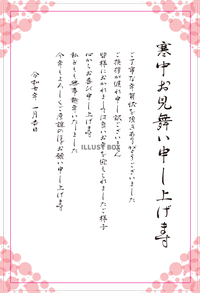 寒中お見舞い申し上げます
ご丁寧な年賀状を頂きありがとうございました
ご挨拶が遅れ申し訳ございません
皆様におかれましては良いお年を迎えられましたご様子
心からお喜び申し上げます
私どもも無事新年を迎えました
今年もよろしくご厚誼のほどお願い申し上げます
令和七年 一月吉日
ILLUST BOX